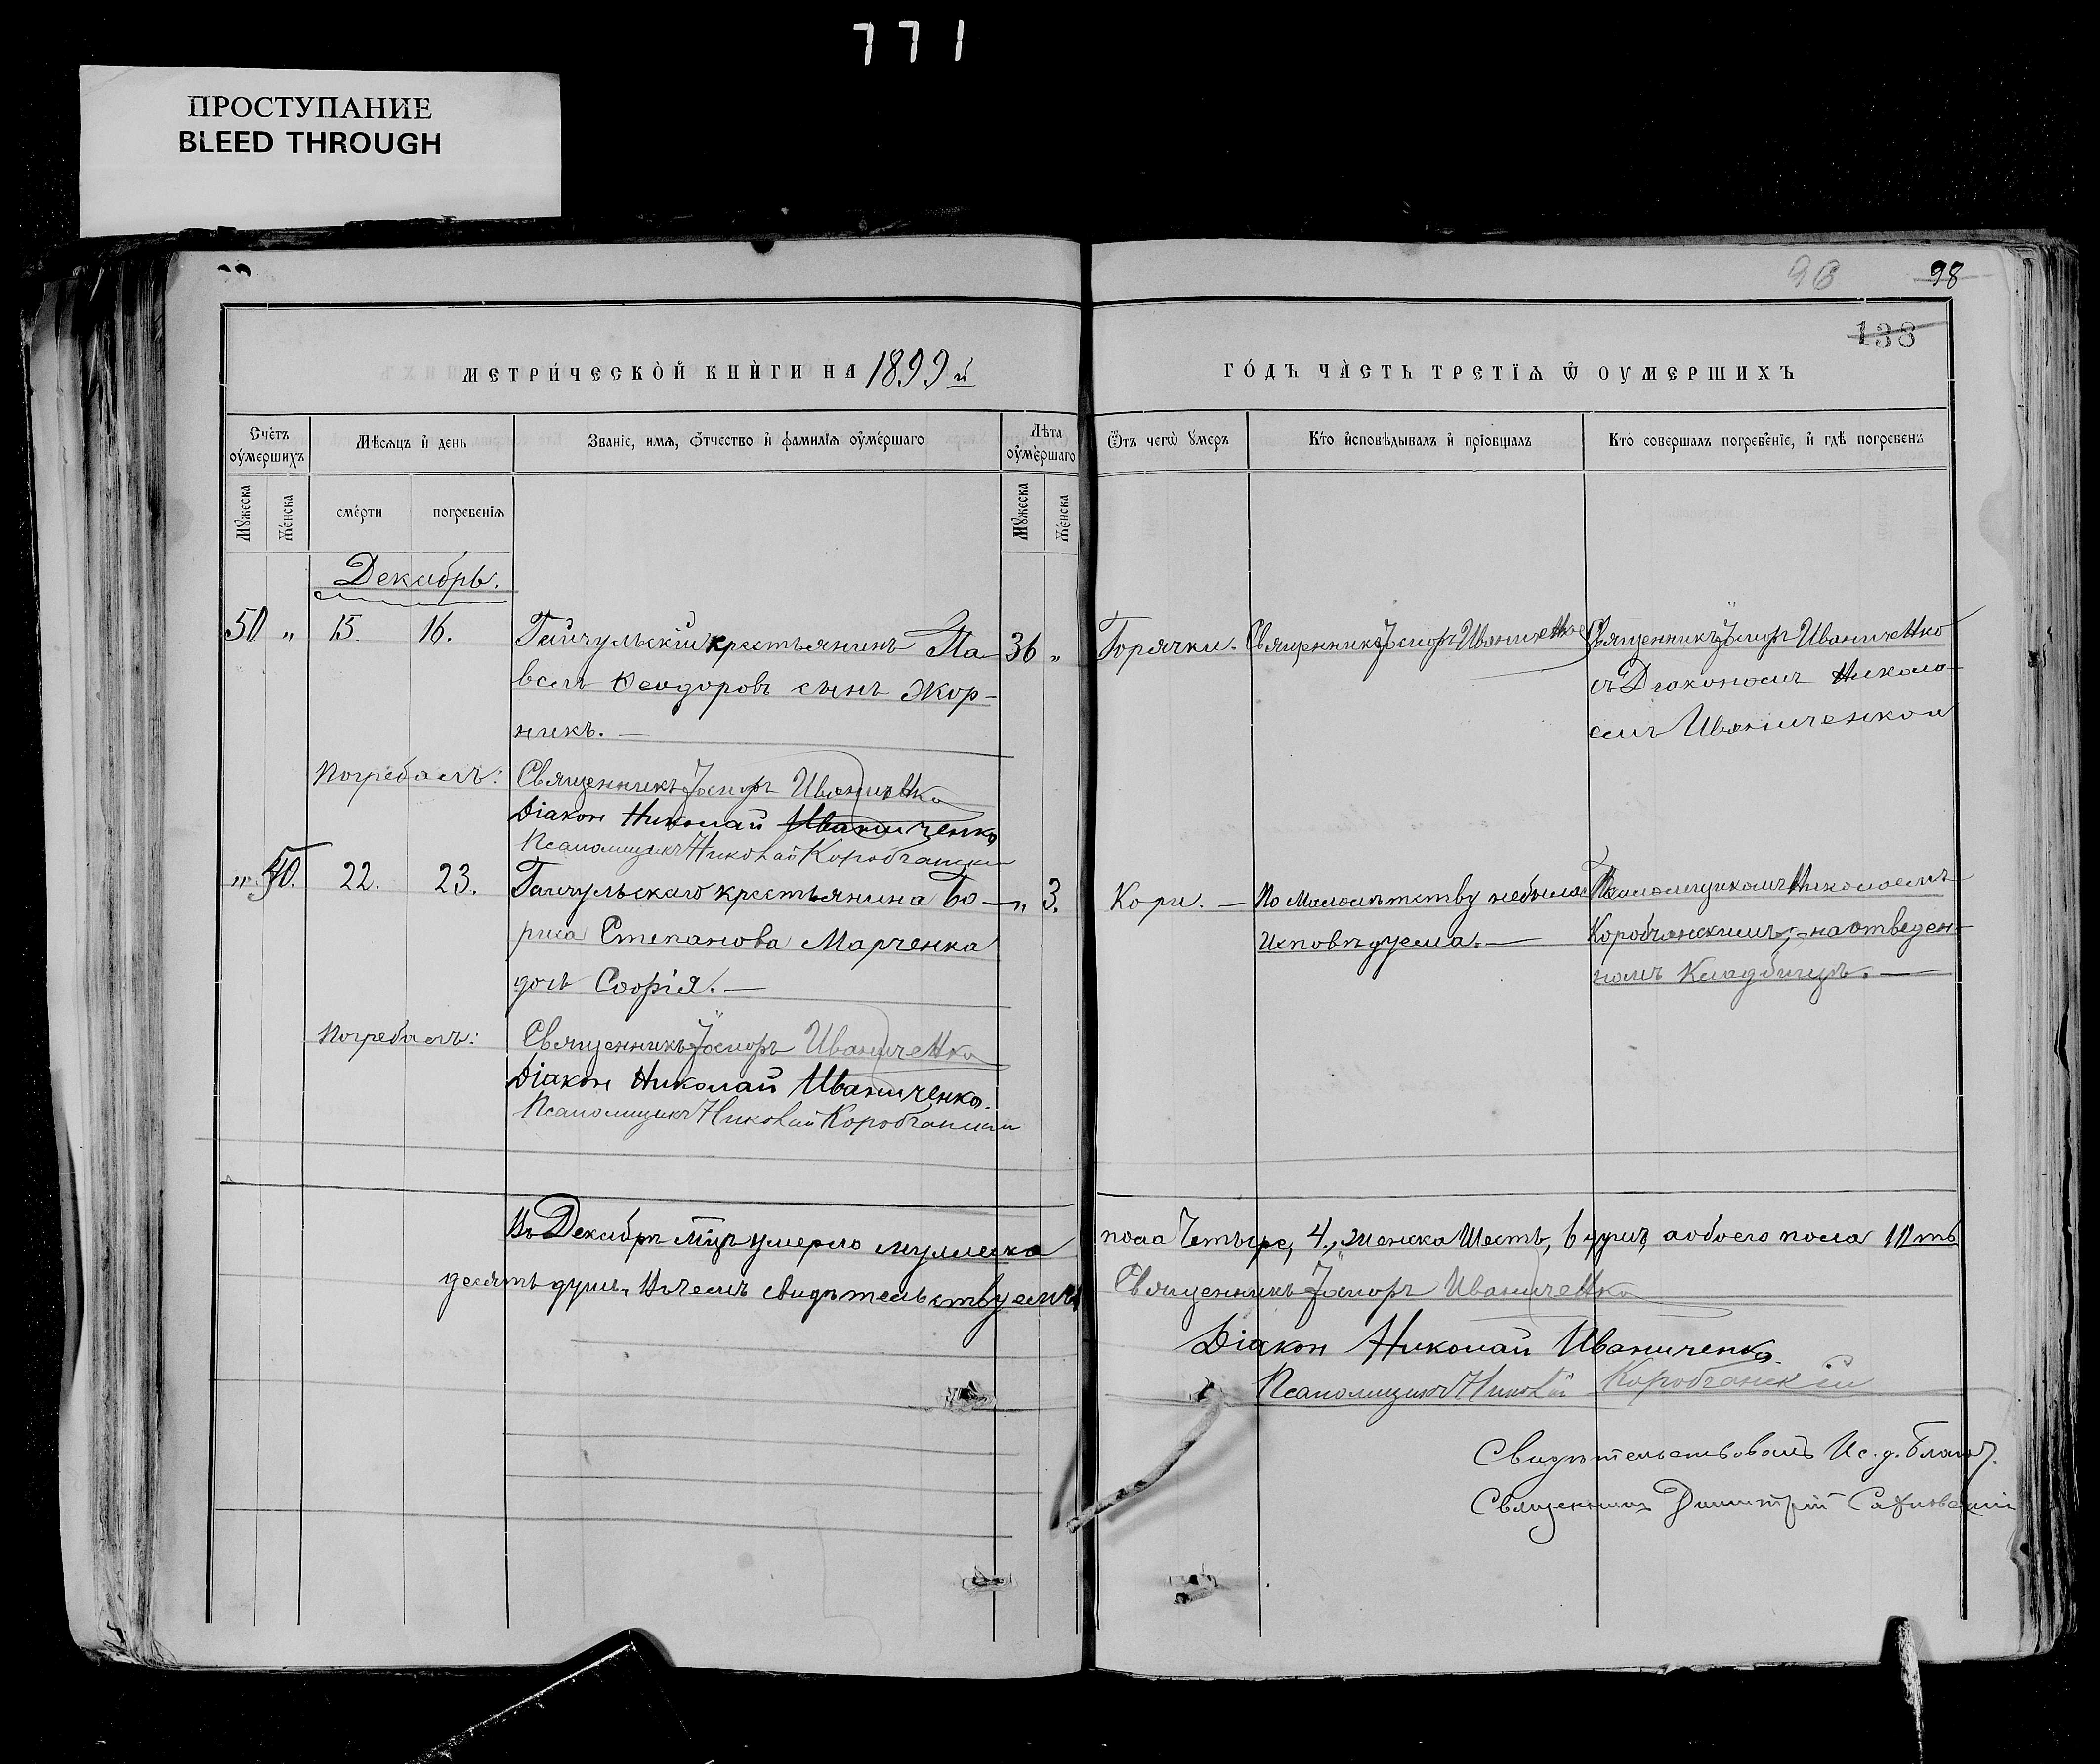 771
ПРОСТУПАНИЕ
BLEED THROUGH
98
138
МЕТРИ́ЧЕСКОЙ КНИ́ГИ НА 1899 й
ГО́ДЪ ЧА́СТЬ ТРЕТІѦ Ѿ ОУМЕРШИХЪ
Счетъ оумершихъ
Мѣсѧцъ и день
Званіе, имѧ, отчество и фамиліѧ оумершаго
Лѣта оумершаго
Ѿтъ чегѡ умеръ
Кто исповѣдывалъ и пріобщалъ
Кто совершалъ погребеніе, и гдѣ погребенъ
Мужеска
Женска
смерти
погребеніѧ
Мужеска
Женска
Декабрь.
50 " 15. 16. Гайчульскій крестьянинъ Па- 36 " Горячки. Священникъ Іосифъ Иваниченко Священникъ Іосифъ Иваниченко
велъ Ѳеодоровъ сынъ Жор- съ Діакономъ Никола-
никъ. — емъ Иваниченкой
Погребалъ: Священникъ Іосифъ Иваниченко
Діакон Николай Иваниченко
Псаломщикъ Николай Коробчанскій
" 50. 22. 23. Гайчульскаго крестьянина Бо- " 3. Кори. — По малолѣтству небыла Псаломщикомъ Николаемъ
риса Степанова Марченка исповѣдуема. — Коробчанскимъ, на отведен-
дочь Софія. — номъ кладбищѣ. —
Погребалъ: Священникъ Іосифъ Иваниченко
Діакон Николай Иваниченко.
Псаломщикъ Николай Коробчанскій
Въ Декабрѣ мцѣ умерло мужеска пола Четыре, 4., женска Шесть, 6 душъ, а обоего пола 10ть
десять душъ. Въ чемъ свидѣтельствуемъ Священникъ Іосифъ Иваниченко
Діакон Николай Иваниченко.
Псаломщикъ Николай Коробчанскій
Свидѣтельствовалъ Ис. д. Благоч.
Священникъ Димитрій